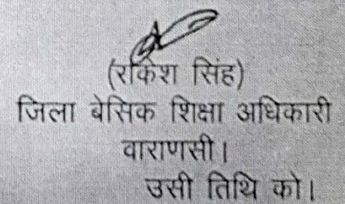 (राकेश सिंह)
जिला बेसिक शिक्षा अधिकारी
वाराणसी।
उसी तिथि को।